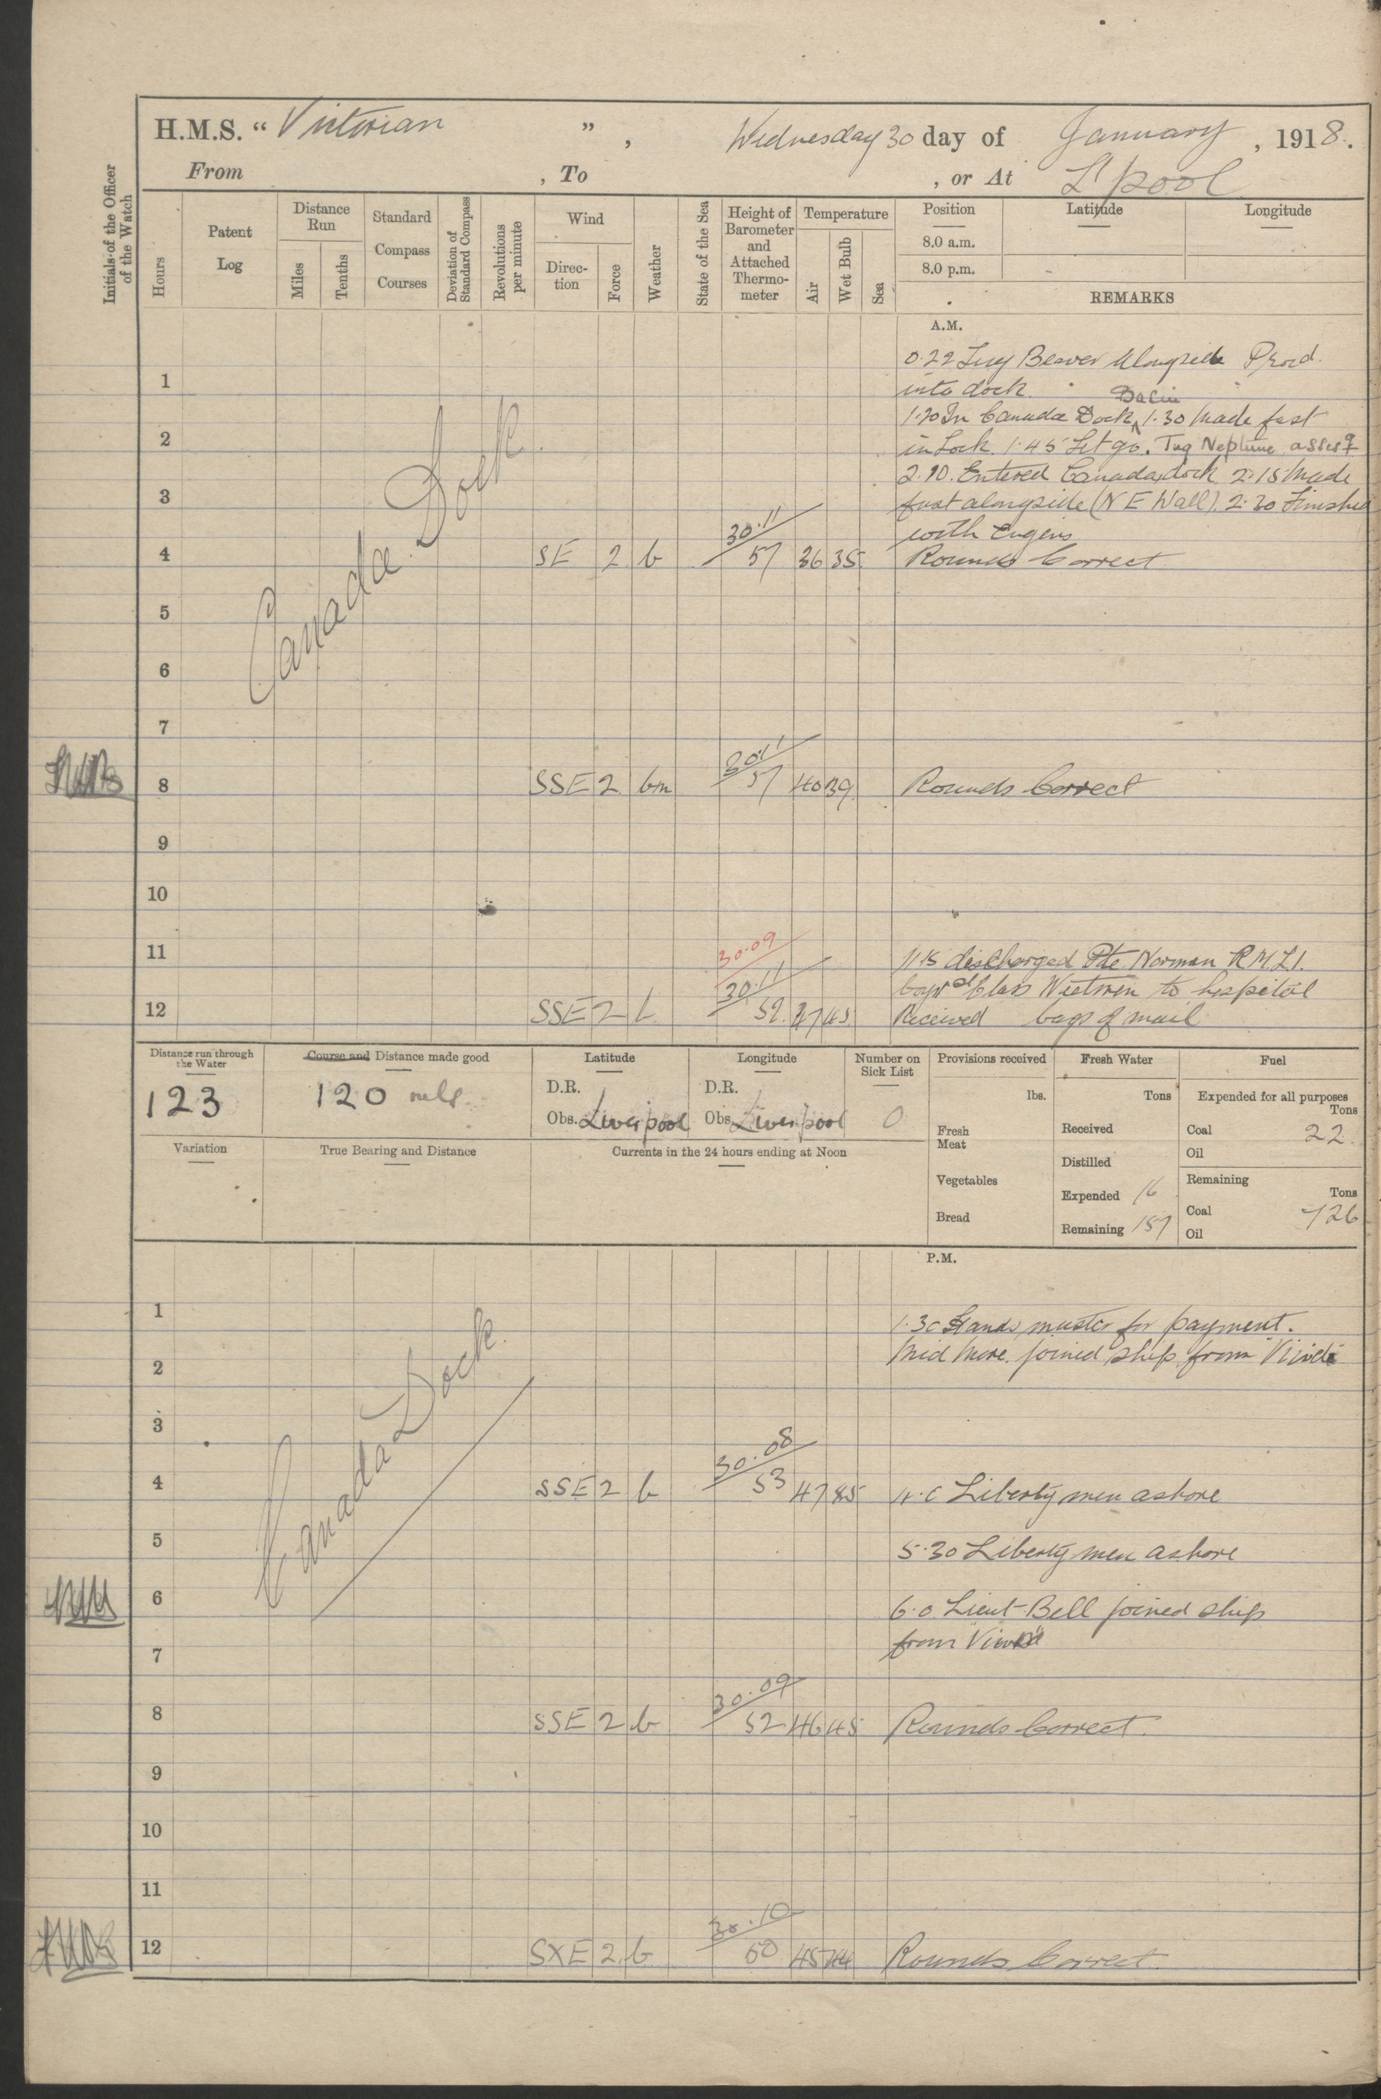 H.M.S. " Victorian ", Wednesday 30 day of January, 1918.
From , To , or At L'pool
Initials of the Officer of the Watch
Hours
Patent Log
Distance Run
Miles
Tenths
Standard Compass Courses
Deviation of Standard Compass
Revolutions per minute
Wind
Direction
Force
Weather
State of the Sea
Height of Barometer and Attached Thermometer
Temperature
Air
Wet Bulb
Sea
Position Latitude Longitude
8.0 a.m.
8.0 p.m.
REMARKS
A.M.
0.22 Tug Beaver alongside Procd
1 into dock
Basin
1.20 In Canada Dock 1.30 Made fast
2 in Lock 1.45 Let go. Tug Neptune assistg
2.10. Entered Canada dock 2.15 Made
3 fast alongside (N E Wall). 2.30 Finished
with Engins
Canada Dock
30.11
4 SE 2 b 57 36 35 Rounds Correct
5
6
7
30.11
8 SSE 2 bm 57 40 39 Rounds Correct
9
10
30.09
11 11.15 discharged Pte Norman R.M.L.I.
30.11 to hospital
12 SSE 2 b 52 47 45 Received bags of mail
Distance run through the Water
123
Course and Distance made good
120 mls
Latitude
D.R.
Obs. Liverpool
Longitude
D.R.
Obs. Liverpool
Number on Sick List
0
Provisions received
lbs.
Fresh Meat
Vegetables
Bread
Fresh Water
Tons
Received
Distilled
Expended 16
Remaining 157
Fuel
Expended for all purposes
Tons
Coal 22
Oil
Remaining
Tons
Coal 726
Oil
Variation
True Bearing and Distance
Currents in the 24 hours ending at Noon
P.M.
1 1.30 Hands muster for payment.
2 Mid More joined ship from
3
Canada Dock
30.08
4 SSE 2 b 53 47 45 4.0 Liberty men ashore
5 5.30 Liberty men ashore
6 6.0 Lieut Bell joined ship
7 from
30.09
8 SSE 2 b 52 46 45 Rounds Correct
9
10
11
30.10
12 SXE 2 b 50 45 44 Rounds Correct